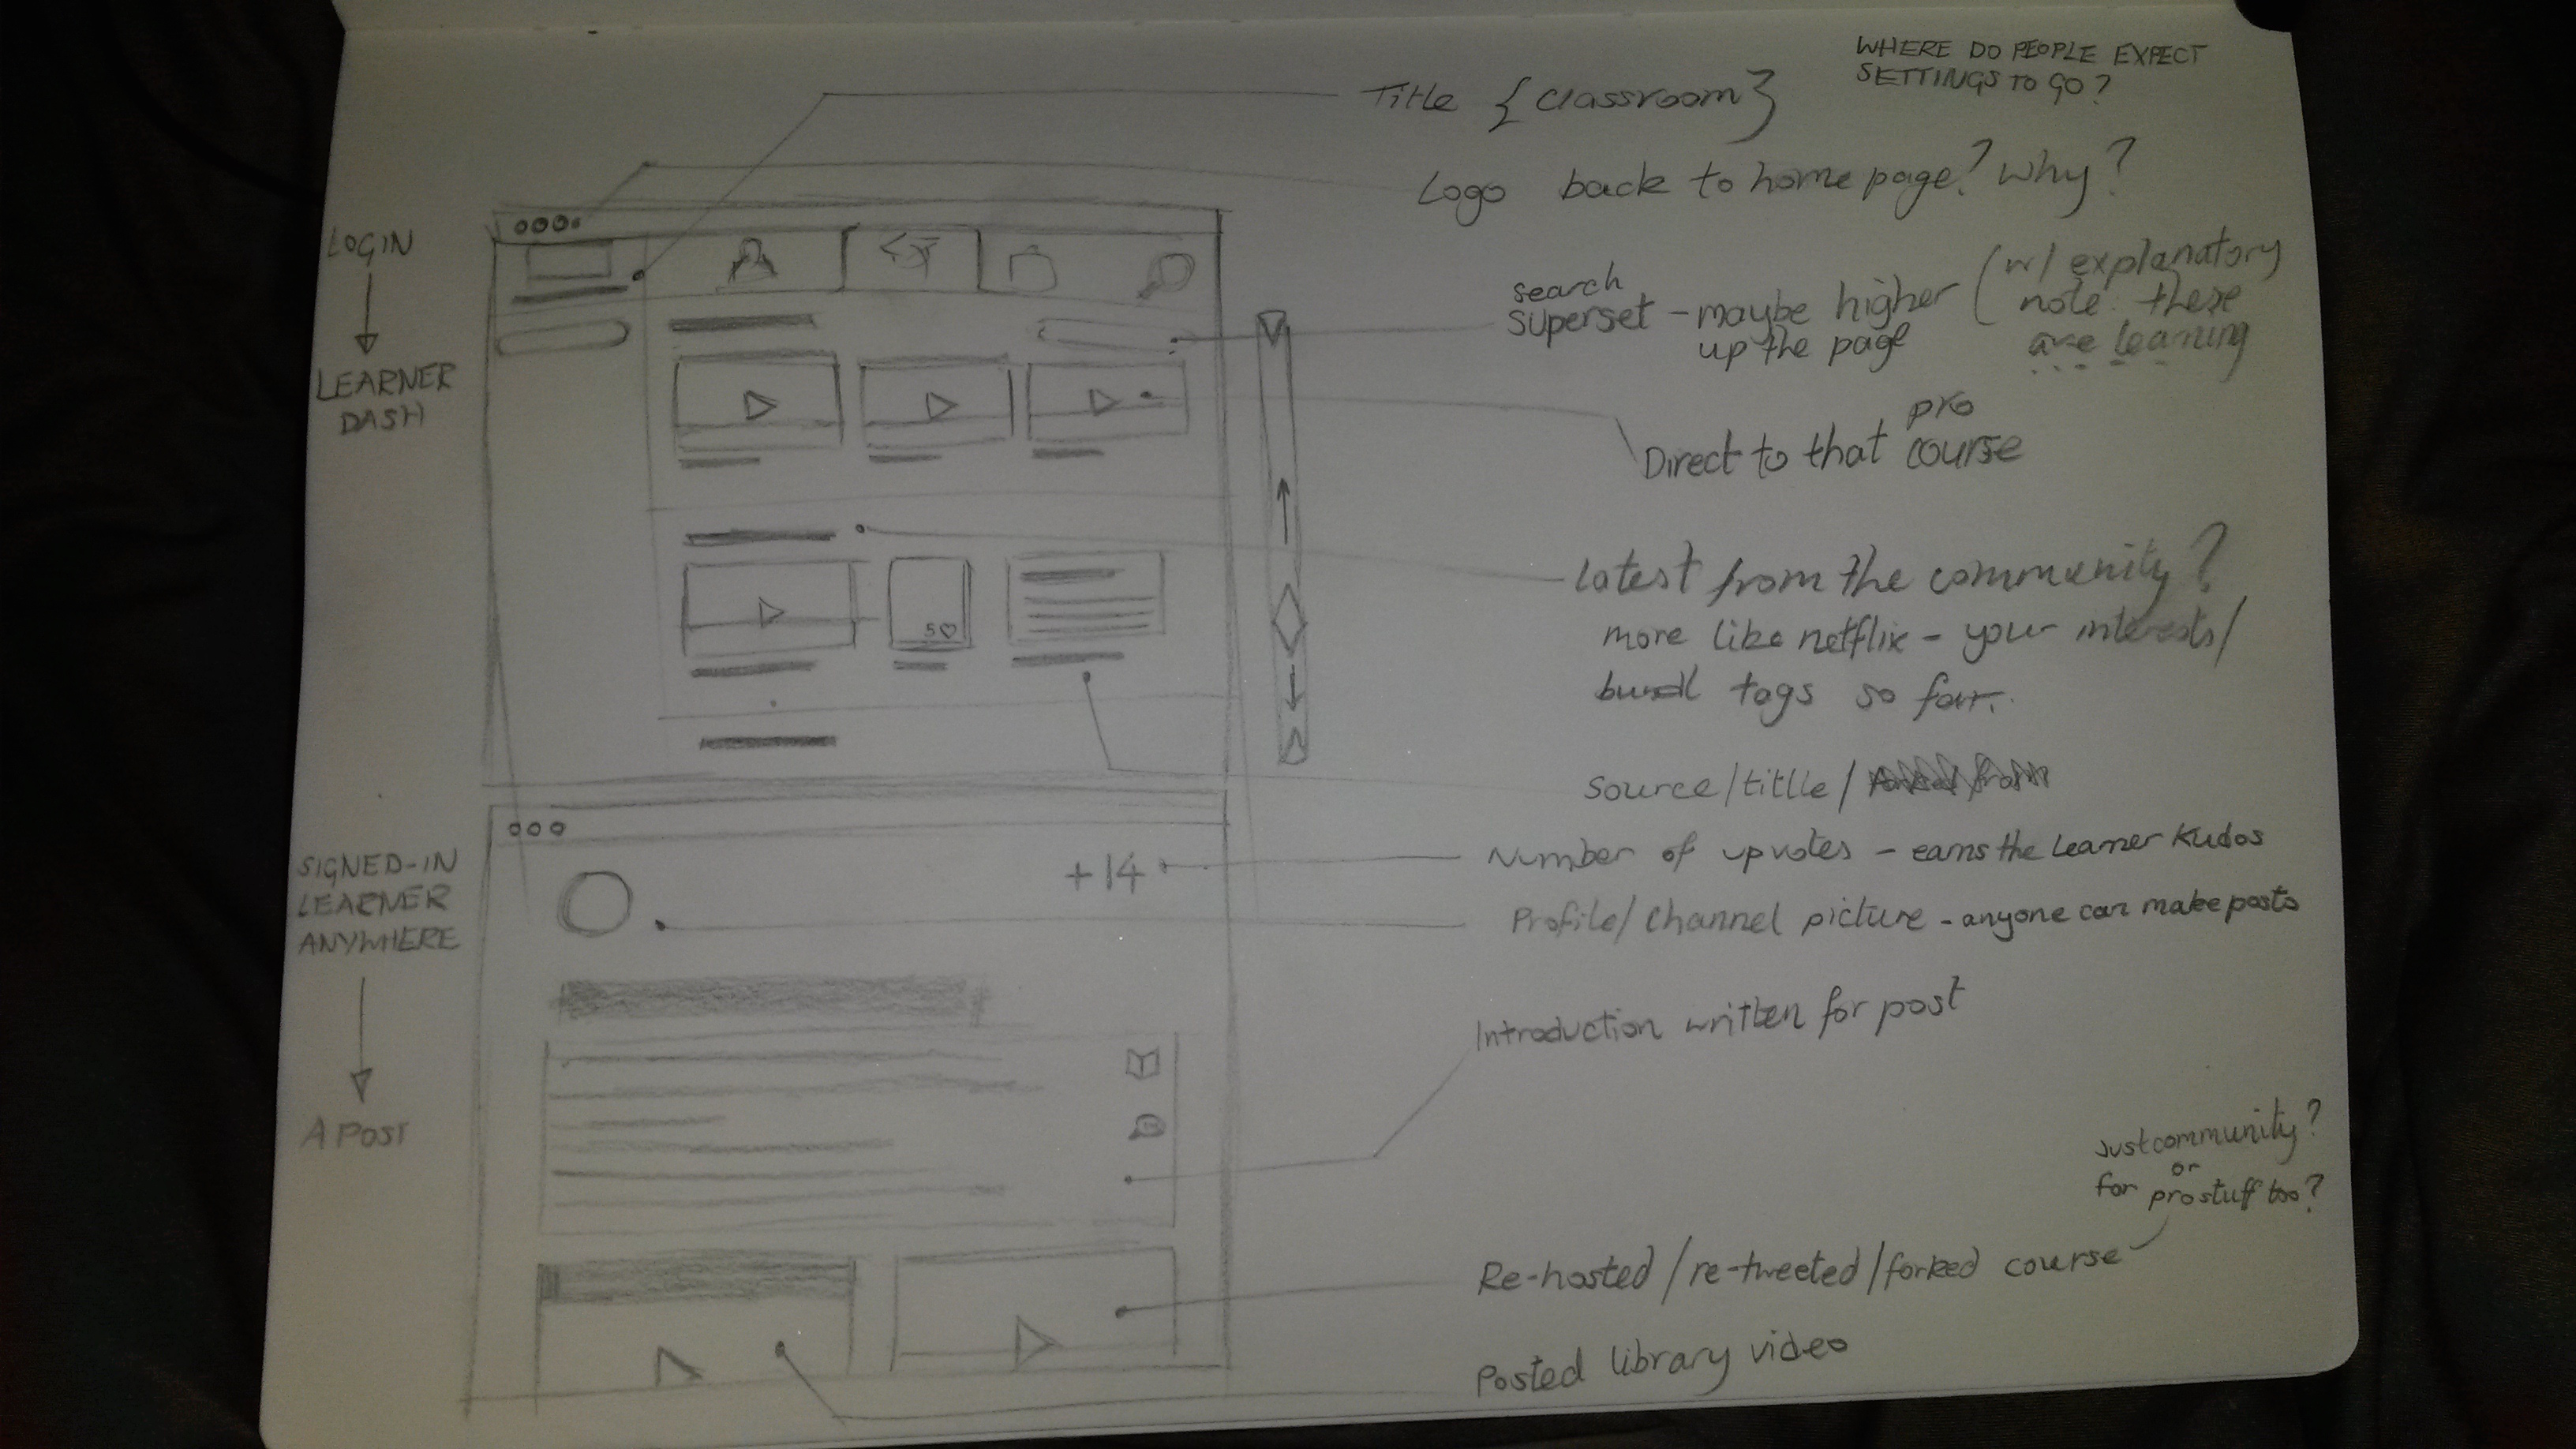 WHERE DO PEOPLE EXPECT
SETTINGS TO GO?
Title {classroom}
Logo back to home page? Why?
LOGIN
LEARNER
DASH
search
superset - maybe higher
up the page
(w/ explanatory
note: these
are learning
pro
Direct to that course
Latest from the community?
more like netflix - your interests/
tags so far.
5♡
Source/titlle/
SIGNED-IN
LEARNER
ANYWHERE
A POST
+14
Number of upvotes - earns the learner Kudos
Profile/channel picture - anyone can make posts
Introduction written for post
Just community?
or
for pro stuff too?
Re-hosted/re-tweeted/forked course
Posted library video